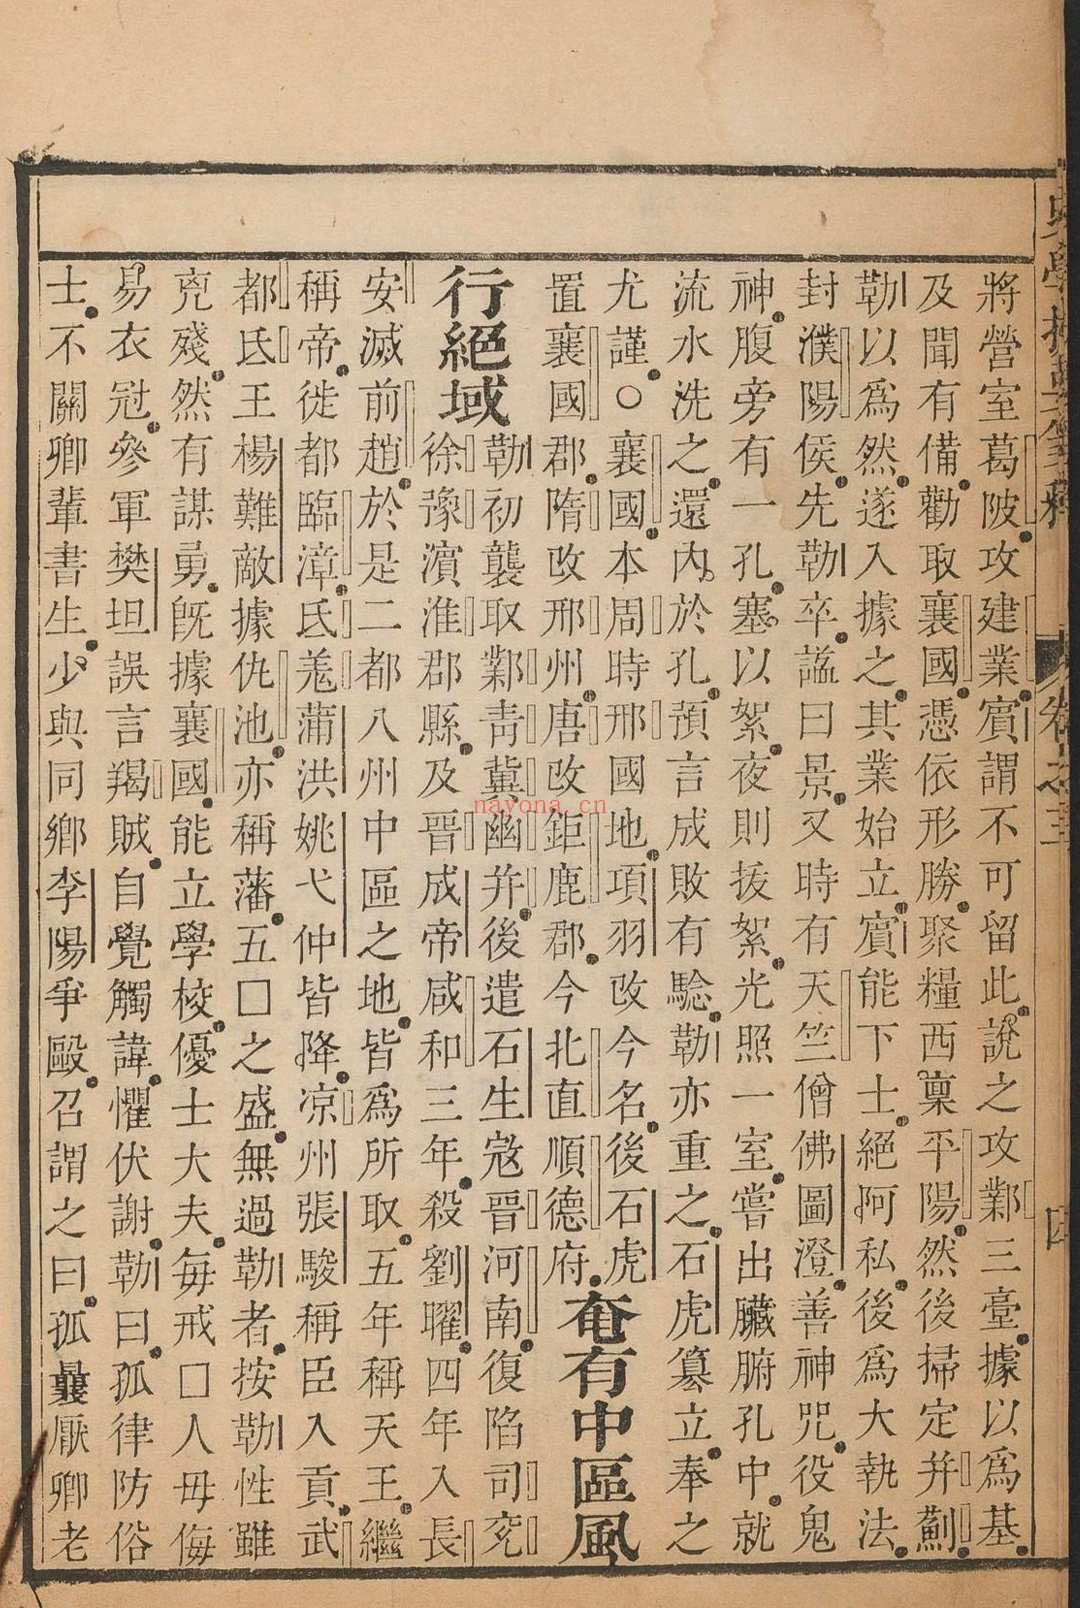 將營室葛陂攻建業賓謂不可留此說之攻鄴三臺據以爲基
及聞有備勸取襄國憑依形勝聚糧西稟平陽然後掃定并薊
勒以爲然遂入據之其業始立賓能下士絕阿私後爲大執法
封濮陽侯先勒卒謚曰景又時有天竺僧佛圖澄善神咒役鬼
神腹旁有一孔塞以絮夜則拔絮光照一室嘗出臟腑孔中就
流水洗之還內於孔預言成敗有驗勒亦重之石虎篡立奉之
尤謹○襄國本周時邢國地項羽改今名後石虎
置襄國郡隋改邢州唐改鉅鹿郡今北直順德府奄有中區風
行絕域
勒初襲取鄴青冀幽并後遣石生寇晉河南復陷司兖
徐豫濱淮郡縣及晉成帝咸和三年殺劉曜四年入長
安滅前趙於是二都八州中區之地皆爲所取五年稱天王繼
稱帝徙都臨漳氐羗蒲洪姚弋仲皆降凉州張駿稱臣入貢武
都氐王楊難敵據仇池亦稱藩五□之盛無過勒者按勒性雖
兇殘然有謀勇旣據襄國能立學校優士大夫每戒□人毋侮
易衣冠參軍樊坦誤言羯賊自覺觸諱懼伏謝勒曰孤律防俗
士不關卿輩書生少與同鄉李陽爭毆召謂之曰孤曩厭卿老
卷之三
四
nayona.cn